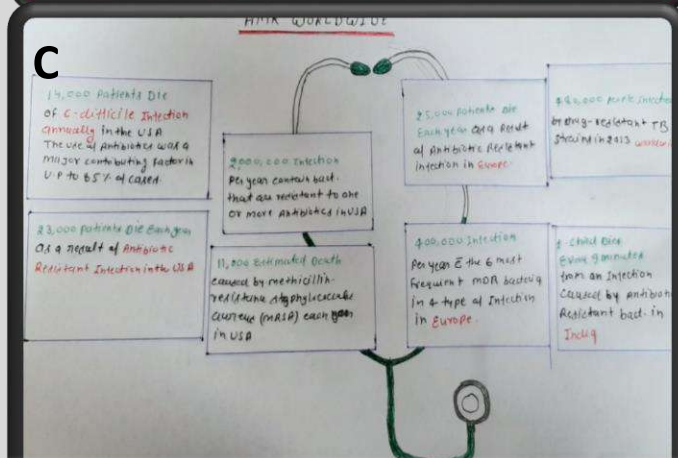 C
AMR WORLDWIDE
14,000 Patients Die
of C-difficile Infection
annually in the USA
The use of Antibiotics was a
major contributing factor in
U.P to 85% of cases.
23,000 Patients Die Each year
as a result of Antibiotic
Resistant Infection in the USA
2000,000 Infection
Per year contain bact.
that are resistant to one
or more Antibiotics in USA
11,200 Estimated Death
caused by methicillin-
aureus (MRSA) each year
in USA
25,000 Patients Die
Each year as a Result
of Antibiotic Resistant
infection in Europe.
400,000 Infection
Per year c̄ the 6 most
frequent MDR bacteria
in 4 type of Infection
in Europe.
by Drug-resistant TB
strains in 2013
Child Dies
Every 9 minutes
from an Infection
caused by Antibiot
Resistant bact. in
India